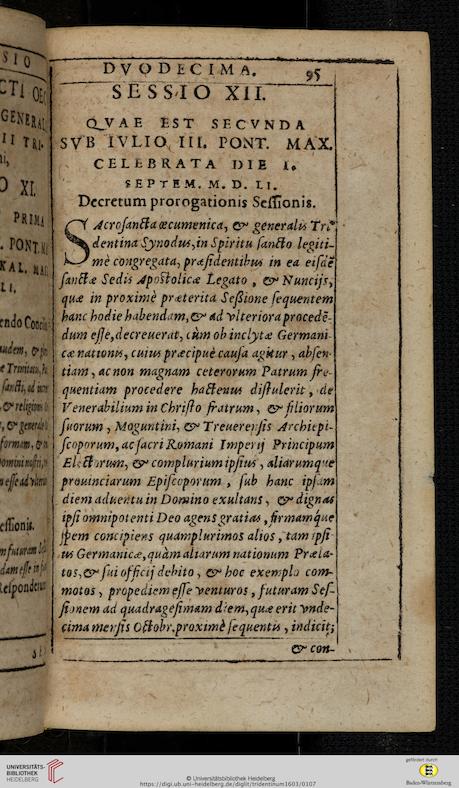 DVODECIMA. 95
SESSIO XII.
QVAE EST SECVNDA
SVB IVLIO III. PONT. MAX.
CELEBRATA DIE I.
SEPTEM. M. D. LI.
Decretum prorogationis Sessionis.
SAcrosancta œcumenica, & generalis Tri-
dentina Synodus, in Spiritu sancto legiti-
mè congregata, præsidentibus in ea eisdē
sanctæ Sedis Apostolicæ Legato, & Nuncijs,
quæ in proximè præterita Sessione sequentem
hanc hodie habendam, & ad vlteriora procedē-
dum esse, decreuerat, cùm ob inclytæ Germani-
cæ nationis, cuius præcipuè causa agitur, absen-
tiam, ac non magnam ceterorum Patrum fre-
quentiam procedere hactenus distulerit, de
Venerabilium in Christo fratrum, & filiorum
suorum, Moguntini, & Treuerensis Archiepi-
scoporum, ac sacri Romani Imperij Principum
Electorum, & complurium ipsius, aliarumque
prouinciarum Episcoporum, sub hanc ipsam
diem aduentu in Domino exultans, & dignas
ipsi omnipotenti Deo agens gratias, firmamq́ue
spem concipiens quamplurimos alios, tam ipsi-
us Germanicæ, quàm aliarum nationum Præla-
tos, & sui officij debito, & hoc exemplo com-
motos, propediem esse venturos, futuram Ses-
sionem ad quadragesimam diem, quæ erit vnde-
cima mensis Octobr. proximè sequentis, indicit;
& con-
SIO
CTI OEC
GENERAL
II TRI-
O XI.
PRIMA
PONT. M
KAL. MAI
LI.
endo Concil
essionis.
UNIVERSITÄTS-
BIBLIOTHEK
HEIDELBERG
© Universitätsbibliothek Heidelberg
https://digi.ub.uni-heidelberg.de/diglit/tridentinum1603/0107
gefördert durch
Baden-Württemberg